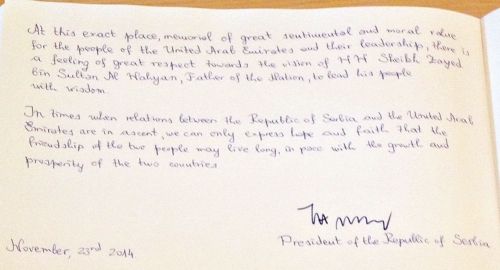 At this exact place, memorial of great sentimental and moral value
for the people of the United Arab Emirates and their leadership, there is
a feeling of great respect towards the vision of HH Sheikh Zayed
bin Sultan Al Nahyan, Father of the Nation, to lead his people
with wisdom.
In times when relations between the Republic of Serbia and the United Arab
Emirates are in ascent, we can only express hope and faith that the
friendship of the two people may live long, in pace with the growth and
prosperity of the two countries
President of the Republic of Serbia
November, 23rd 2014